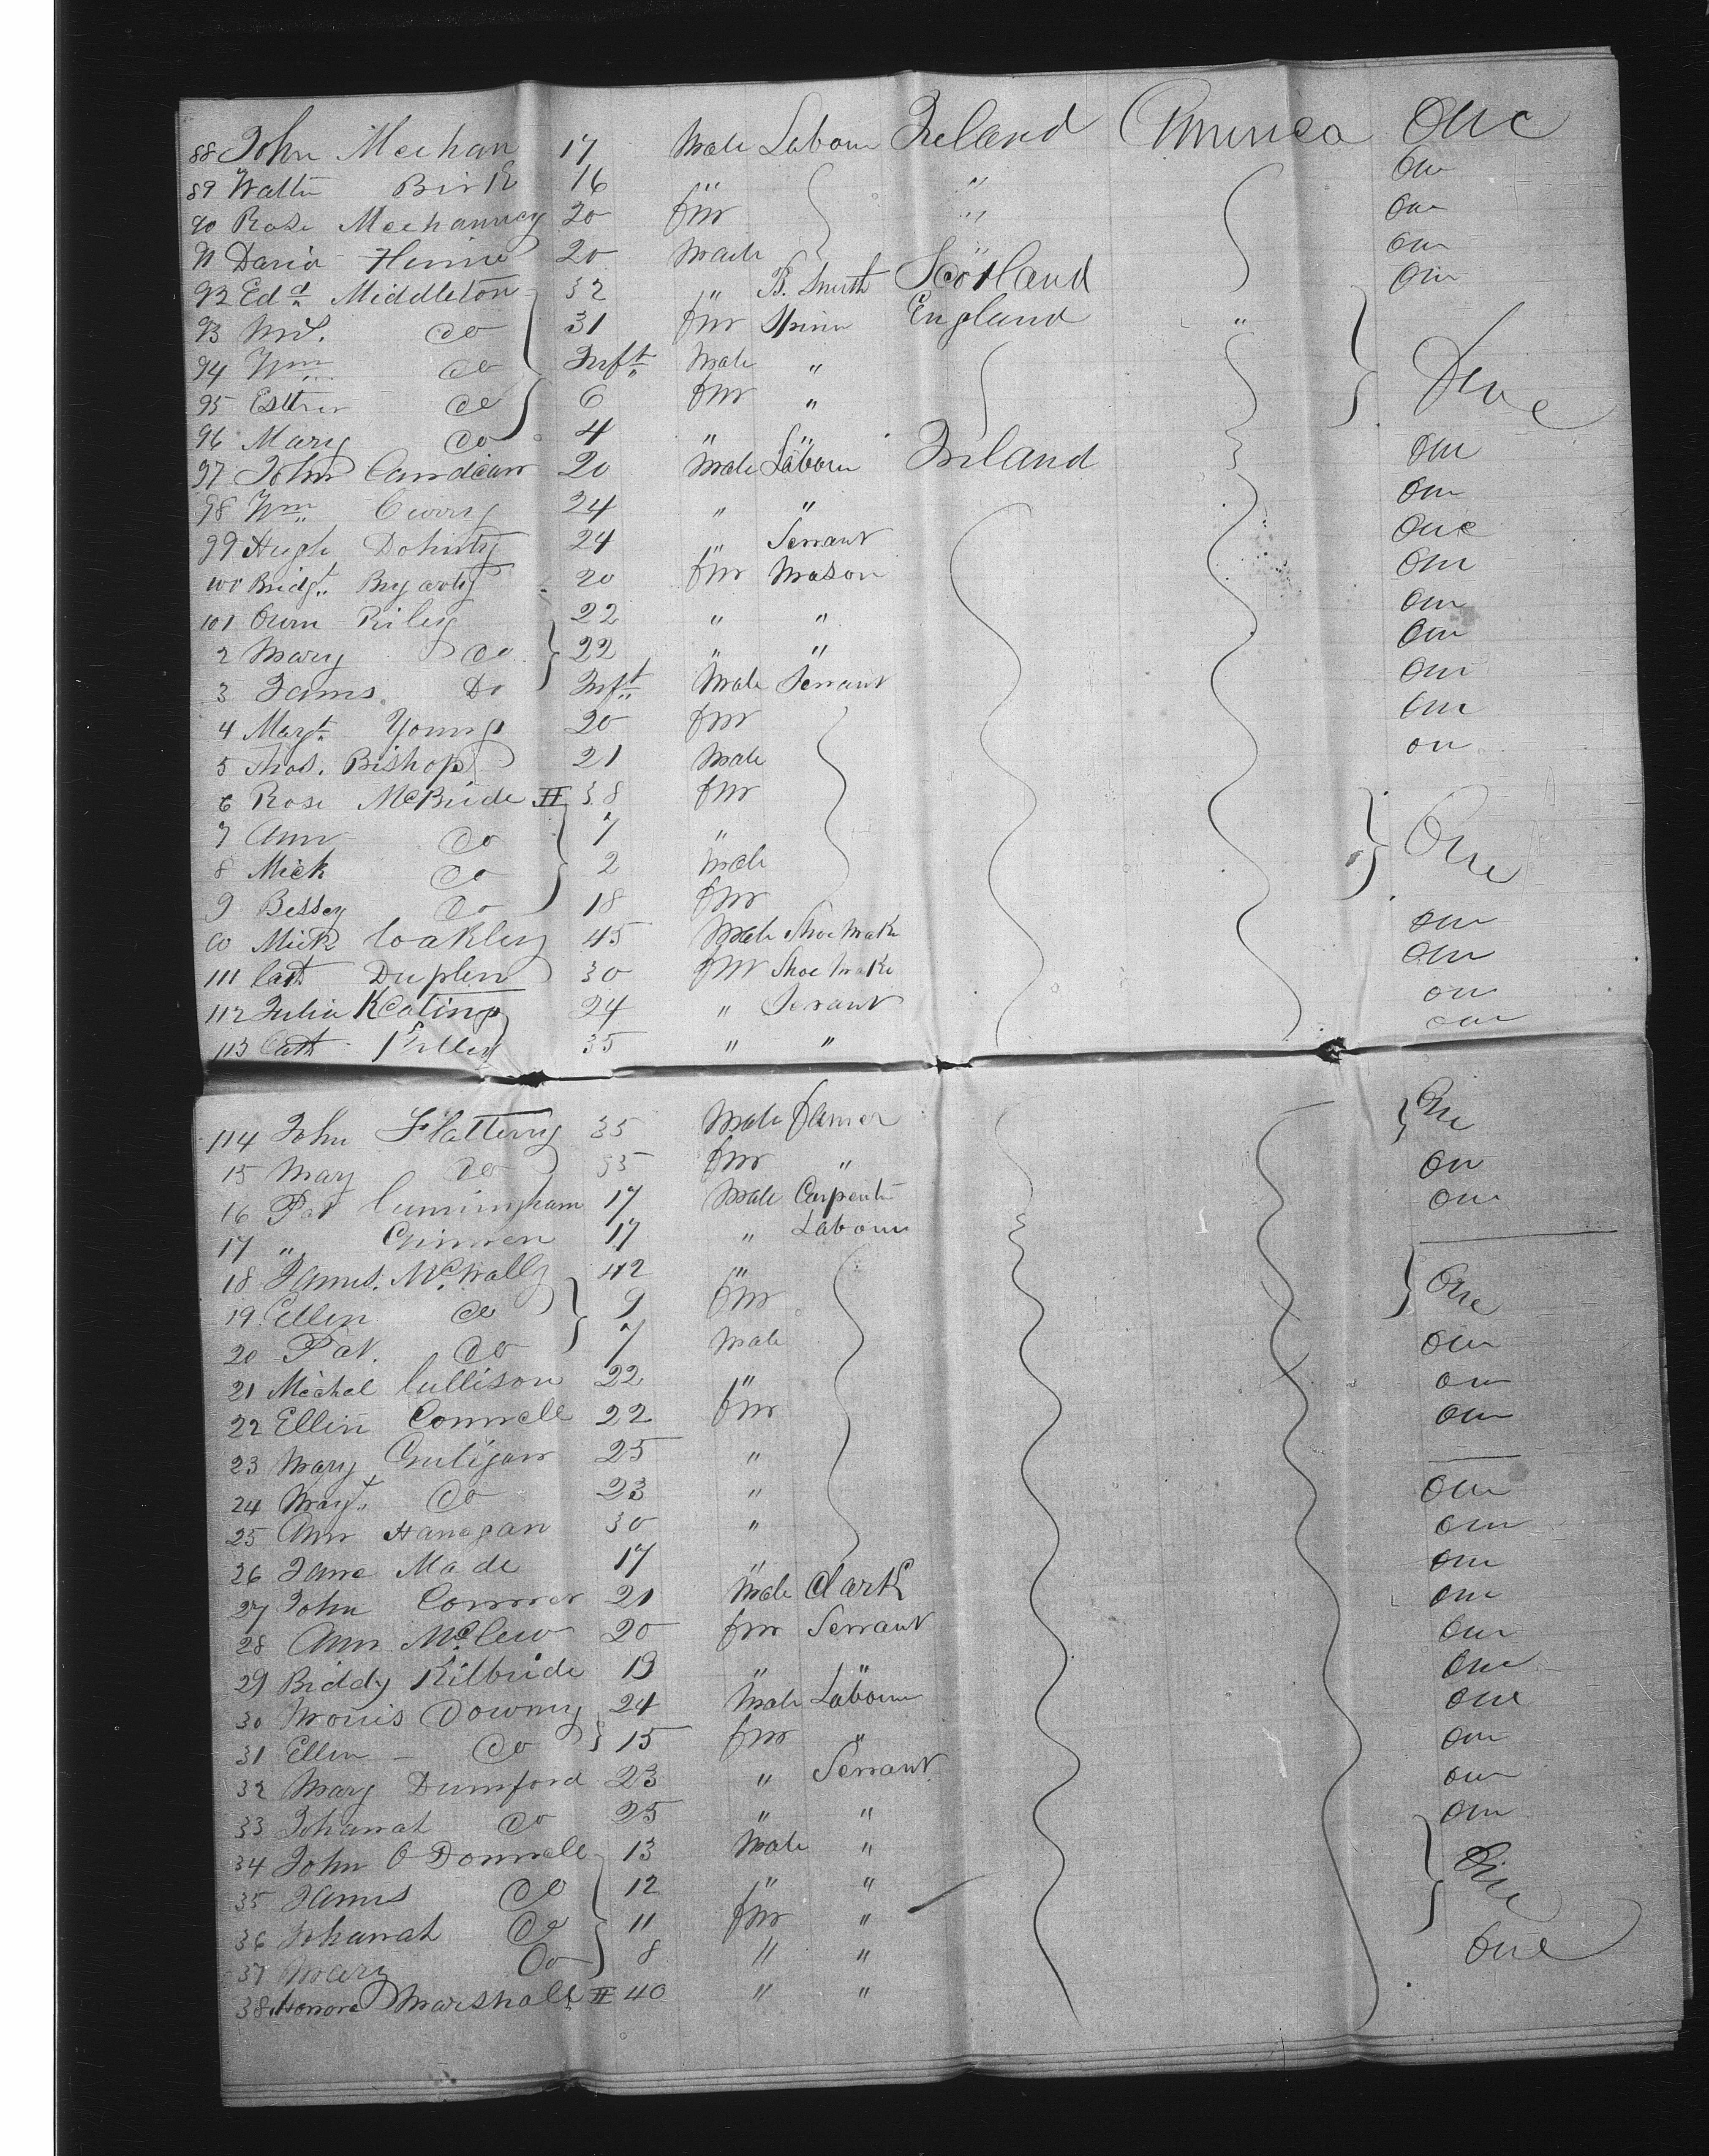 88 John Meehan 17 Male Labour Ireland America One
89 Walter Birk 16 " " One
90 Rose Mechanney 20 fm " One
91 David Hinie 20 Male " One
92 Edd Middleton 32 " B. Smith Scotland One
93 Mrs. do 31 fm Spinn England "
94 Wm do Inft Male "
95 Esther do 6 fm " One
96 Mary do 4 " "
97 John Candican 20 Male Labour Ireland One
98 Wm Curry 24 " " One
99 Hugh Dohirty 24 " Servant One
100 Bridgt. Bryarty 20 fm Mason One
101 Owen Riley 22 " " One
2 Mary do 22 " " One
3 James Do Inft Male Servant One
4 Margt. Young 20 fm One
5 Thos. Bishop 21 Male on
6 Rose McBride II 38 fm
7 Ann do 7 " One
8 Mick do 2 Male
9 Bessey do 18 fm
10 Mick Coakley 45 Male Shoe Make One
111 Cath Duplen 30 fm Shoe Make One
112 Julia Keating 24 " Servant on
113 Cath 35 " " one
114 John Flatterry 35 Male farmer One
15 Mary do 35 fm " on
16 Pat Cunningham 17 Male Carpenter One
17 " Ginnen 17 " Labour
18 James. McNally 42 "
19 Ellen do 9 fm One
20 Pat. do 7 Male One
21 Michal Cullison 22 " on
22 Ellin Connell 22 fm One
23 Mary Guligan 25 "
24 Margt. do 23 " One
25 Ann Hanagan 30 " One
26 Jane Made 17 " One
27 John Connor 21 Male Clark One
28 Ann McClew 20 fm Servant One
29 Biddy Kilbride 19 " " One
30 Morris Downey 24 Male Labour One
31 Ellen do 15 fm " One
32 Mary Dumford 23 " Servant One
33 Johanah do 25 " " One
34 John O Donnell 13 Male "
35 James do 12 " " One
36 Johanah do 11 fm "
37 Mary Do 8 " " One
38 Honora Marshall II 40 " "